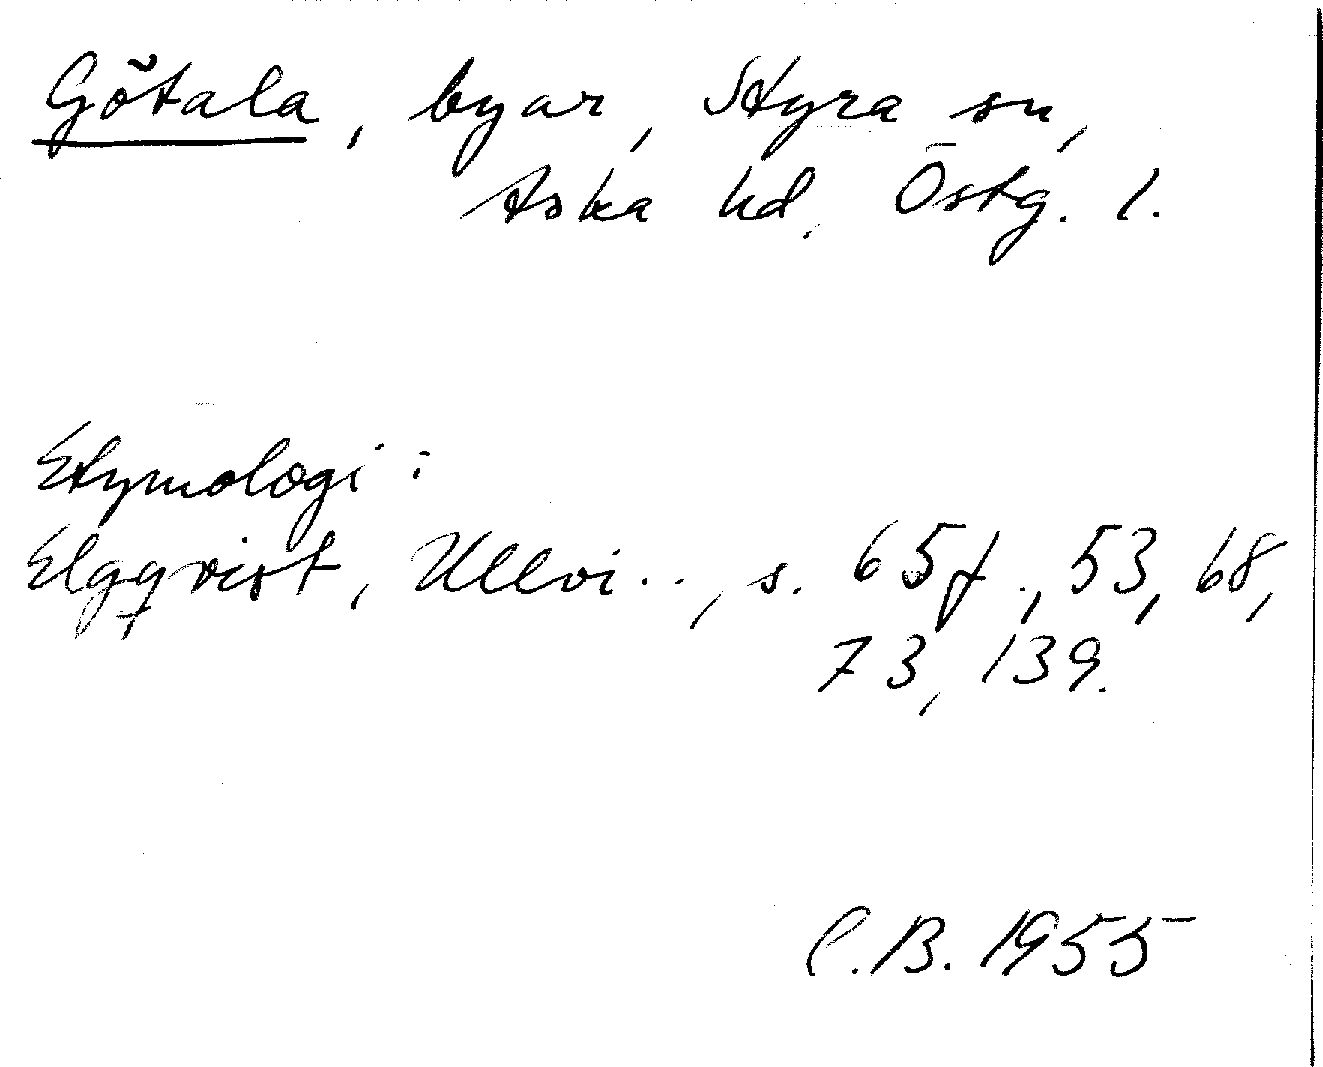 Götala, byar, Styra sn,
Aska hd, Östg. l.
Etymologi:
Elgqvist, Ullvi.., s. 65f., 53, 68,
73, 139.
C.B. 1955